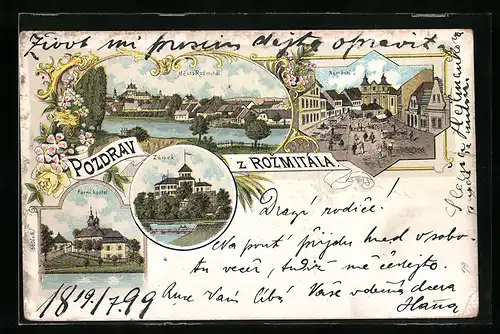 Život mi prosím dejte opravit
Město Rožmitál
Náměstí
POZDRAV
Z ROŽMITÁLA.
Zámek
Farní kostel
Drazí rodiče!
Na pouť přijdu hned v sobo-
tu večer, tudíž mě čekejte.
Ruce Vám líbá Vaše vděčná dcera
Haňa
18 19/7 99
Slečna